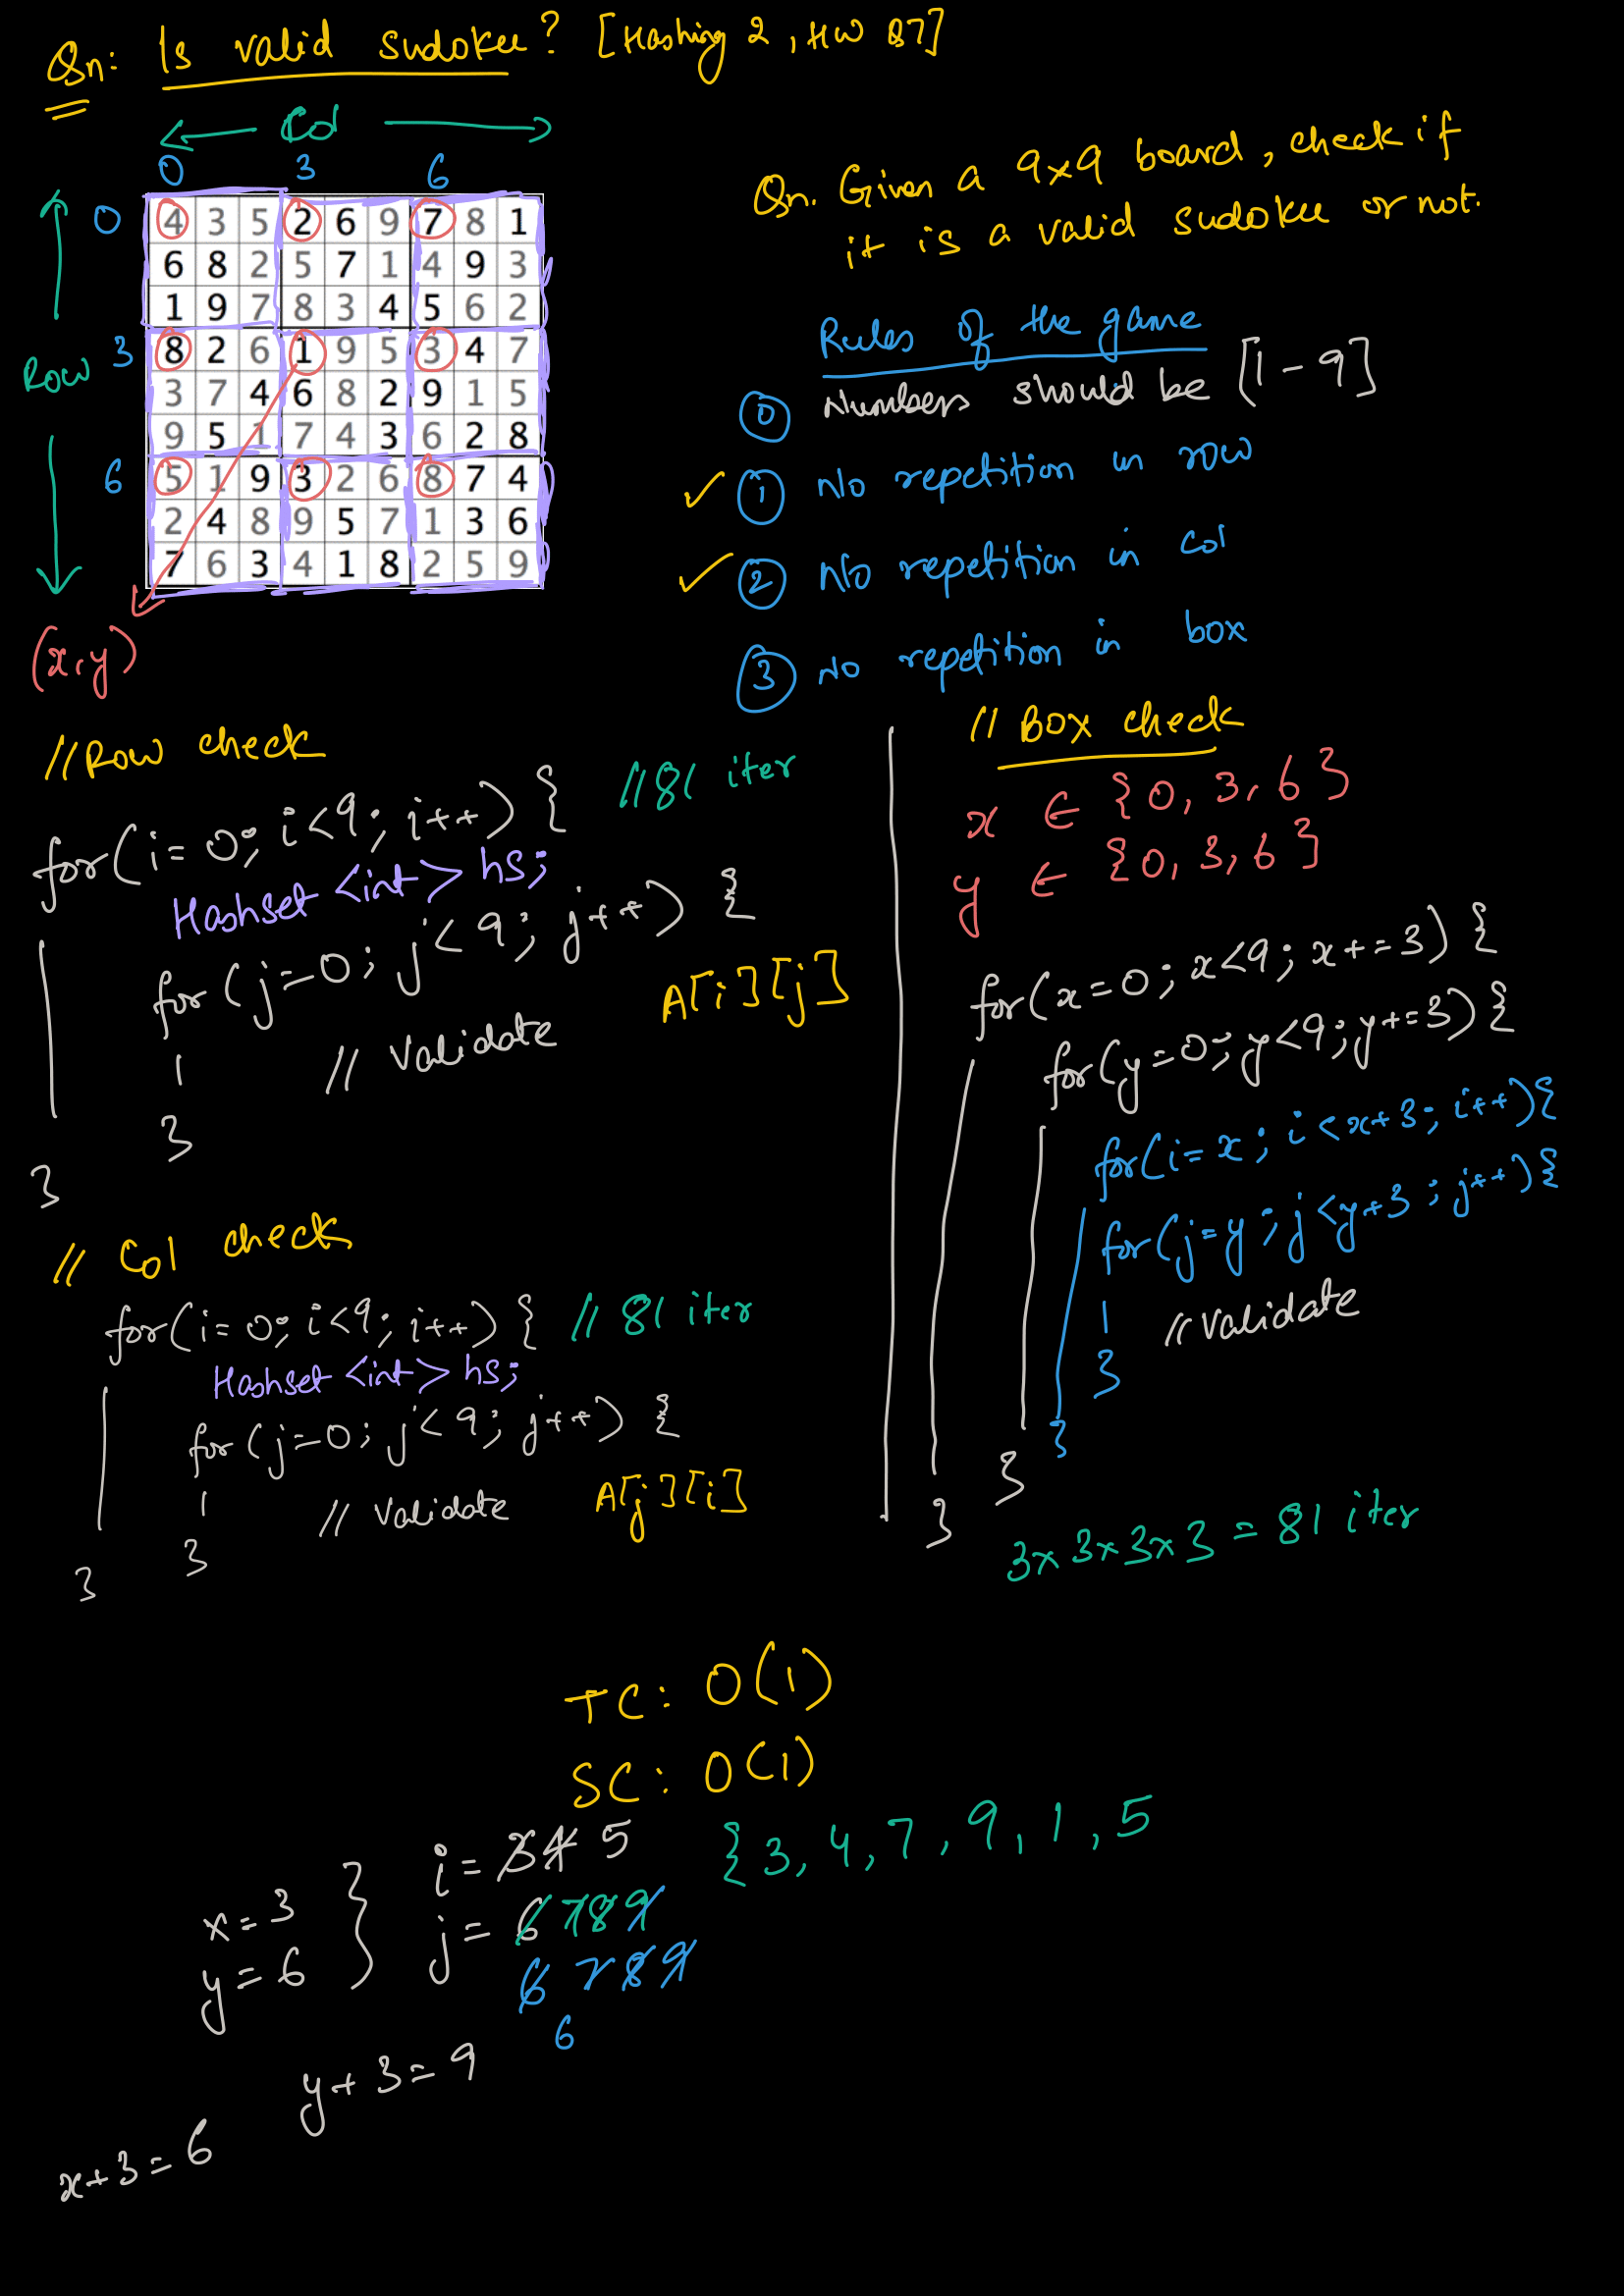 Qn: Is valid sudoku? [Hashing 2, HW Q7]
Col
0 3 6
Row
0
3
6
4 3 5 2 6 9 7 8 1
6 8 2 5 7 1 4 9 3
1 9 7 8 3 4 5 6 2
8 2 6 1 9 5 3 4 7
3 7 4 6 8 2 9 1 5
9 5 1 7 4 3 6 2 8
5 1 9 3 2 6 8 7 4
2 4 8 9 5 7 1 3 6
7 6 3 4 1 8 2 5 9
(x,y)
Qn. Given a 9x9 board, check if
it is a valid sudoku or not.
Rules of the game
0 Numbers should be [1-9]
✓ 1 No repetition in row
✓ 2 No repetition in col
3 No repetition in box
//Row check
for(i=0; i<9; i++) { //81 iter
Hashset <int> hs;
for (j=0; j<9; j++) {
A[i][j]
// Validate
}
}
// Col check
for(i=0; i<9; i++) { // 81 iter
Hashset <int> hs;
for (j=0; j<9; j++) {
// Validate A[j][i]
}
}
// Box check
x ∈ {0, 3, 6}
y ∈ {0, 3, 6}
for(x=0; x<9; x+=3) {
for(y=0; y<9; y+=3) {
for(i=x; i<x+3; i++){
for(j=y; j<y+3; j++){
// Validate
}
}
}
}
3x3x3x3 = 81 iter
TC: O(1)
SC: O(1)
x=3
y=6
}
i= 3 4 5
j= 6 7 8 9
6 7 8 9
6
{3, 4, 7, 9, 1, 5
y+3=9
x+3=6